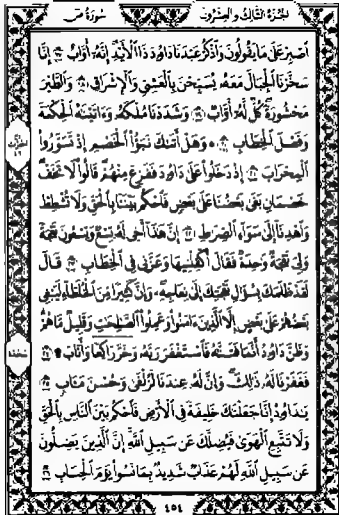 الجزء الثالث والعشرون سورة ص
اصبر على ما يقولون واذكر عبدنا داوود ذا الأيد إنه أواب ١٧ إنا
سخرنا الجبال معه يسبحن بالعشي والإشراق ١٨ والطير
محشورة كل له أواب ١٩ وشددنا ملكه وءاتينه الحكمة
وفصل الخطاب ٢٠ وهل أتىك نبؤا الخصم إذ تسوروا
المحراب ٢١ إذ دخلوا على داوود ففزع منهم قالوا لا تخف
خصمان بغى بعضنا على بعض فاحكم بيننا بالحق ولا تشطط
واهدنا إلى سواء الصرط ٢٢ إن هذا أخي له تسع وتسعون نعجة
ولي نعجة وحدة فقال أكفلنيها وعزني في الخطاب ٢٣ قال
لقد ظلمك بسؤال نعجتك إلى نعاجه وإن كثيرا من الخلطاء ليبغي
بعضهم على بعض إلا الذين ءامنوا وعملوا الصلحت وقليل ما هم
وظن داوود أنما فتنه فاستغفر ربه وخر راكعا وأناب ٢٤
فغفرنا له ذلك وإن له عندنا لزلفى وحسن مئاب ٢٥
يداوود إنا جعلنك خليفة في الأرض فاحكم بين الناس بالحق
ولا تتبع الهوى فيضلك عن سبيل الله إن الذين يضلون
عن سبيل الله لهم عذاب شديد بما نسوا يوم الحساب ٢٦
سجدة
٤٥٤